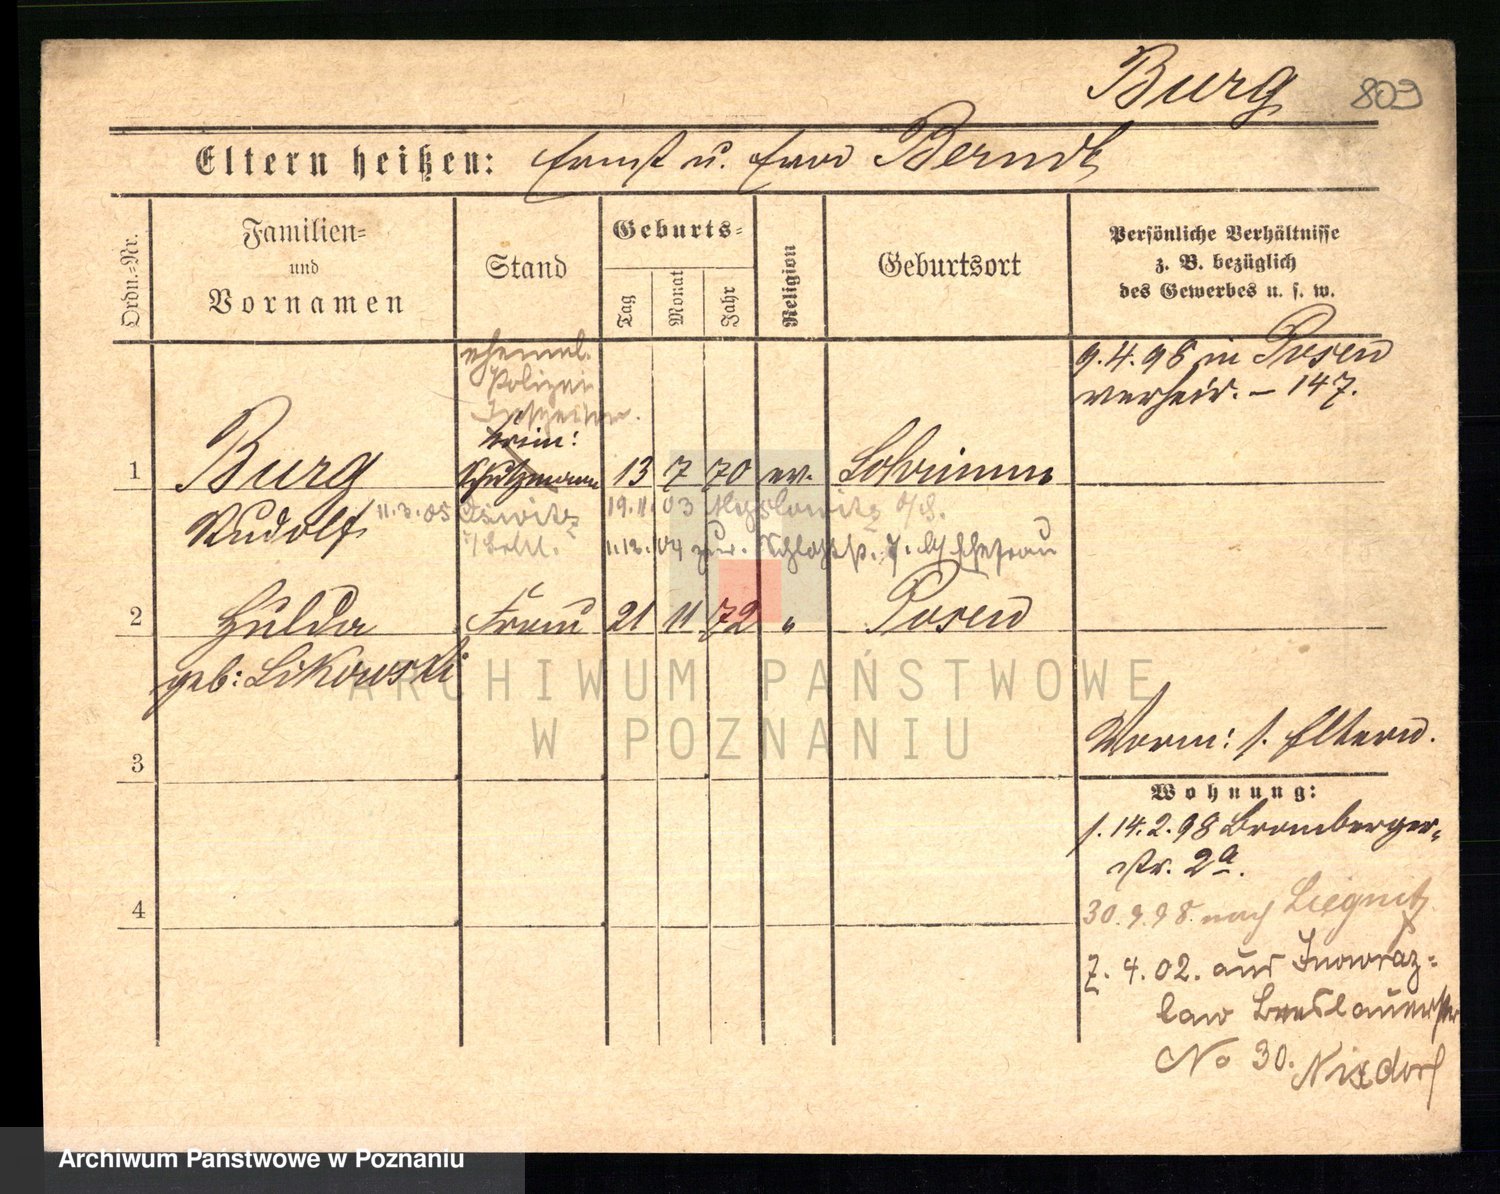 Burg 809
Eltern heißen: Ernst u. Berndt
Ordn.=Nr.
Familien=
und
Vornamen
Stand
Geburts=
Tag
Monat
Jahr
Religion
Geburtsort
Persönliche Verhältnisse
z. B. bezüglich
des Gewerbes u. s. w.
ehemal.
Polizei
9.4.98 in Posen
verheir. – 147.
Krim:
1 Burg Schutzmann 13 7 70 ev.
Rudolf 11.3.05 19.11.03 Myslowitz O/S.
1.12.04 zur.
2 Hulda Frau 21 11 72 " Posen
geb: Likowski
ARCHIWUM PAŃSTWOWE
W POZNANIU
Vorm: s. Eltern.
3
Wohnung:
s. 14.2.98 Bromberger=
str. 2a.
4
30.9.98. nach Liegnitz
7. 4. 02. aus Inowraz=
law Breslauerstr
No 30. Nixdorf
Archiwum Państwowe w Poznaniu